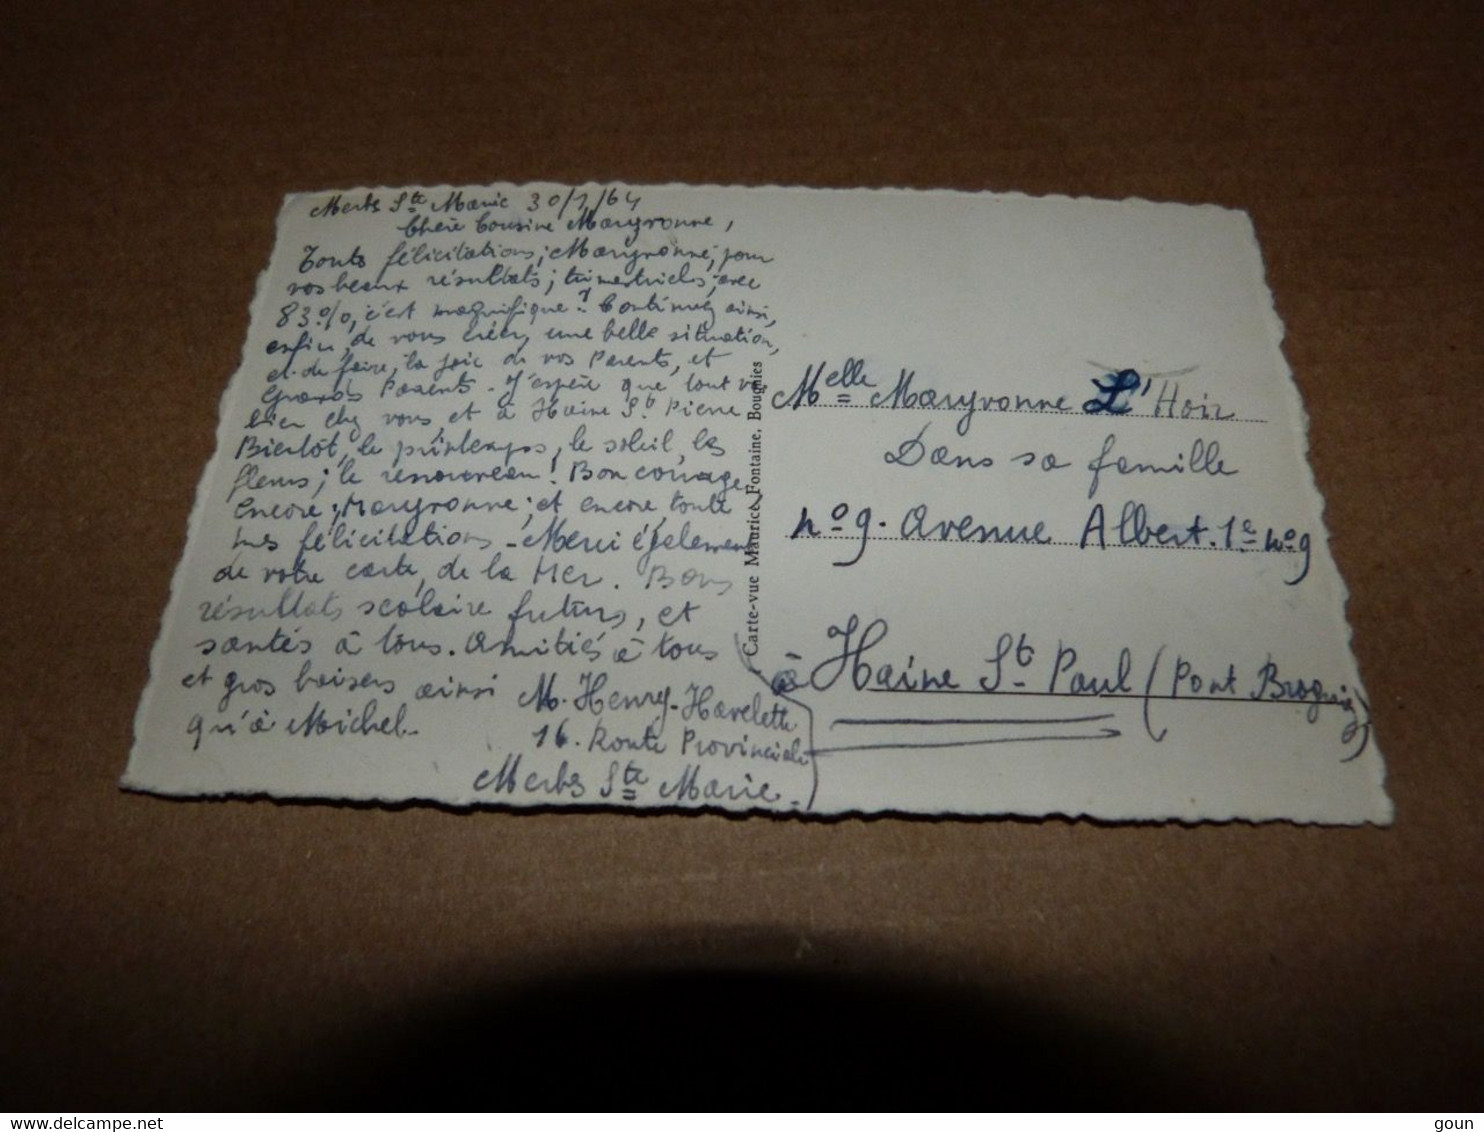 Merbs Ste Marie 30/1/64
Chère Cousine Maryvonne,
Toute félicitations; Maryvonne; pour
vos beaux résultats; trimestriels; avec
83%, c'est magnifique! Continuez ainsi,
enfin, de vous créer, une belle situation,
et de faire, la joie de vos Parents, et
Grands Parents - J'espère que tout va
bien chez vous, et à Haine St Pierre
Bientôt, le printemps, le soleil, les
fleurs; le renouveau! Bon courage
encore; Maryvonne; et encore toute
mes félicitations - Merci également
de votre carte, de la Mer. Bons
résultats scolaire futurs, et
santés à tous. Amitiés à tous
et gros baisers ainsi
qu'à Michel.
M. Henry-Havelette
16. Route Provinciale
Merbes Ste Marie.
Carte-vue Maurice Fontaine, Bougnies
Melle Maryvonne L'Hoir
Dans sa famille
no 9. Avenue Albert. 1e no 9
à Haine St Paul (Pont Brogniez)
goun